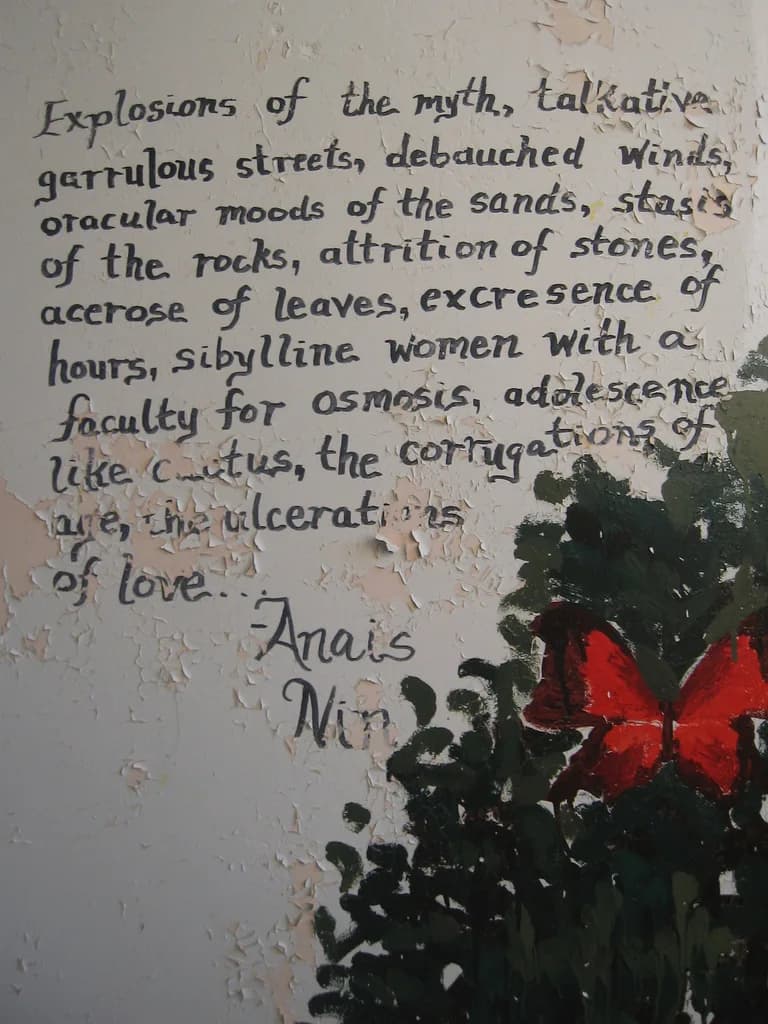 Explosions of the myth, talkative
garrulous streets, debauched winds,
oracular moods of the sands, stasis
of the rocks, attrition of stones,
acerose of leaves, excresence of
hours, sibylline women with a
faculty for osmosis, adolescence
like cactus, the corrugations of
age, the ulcerations
of love...
-Anais
Nin